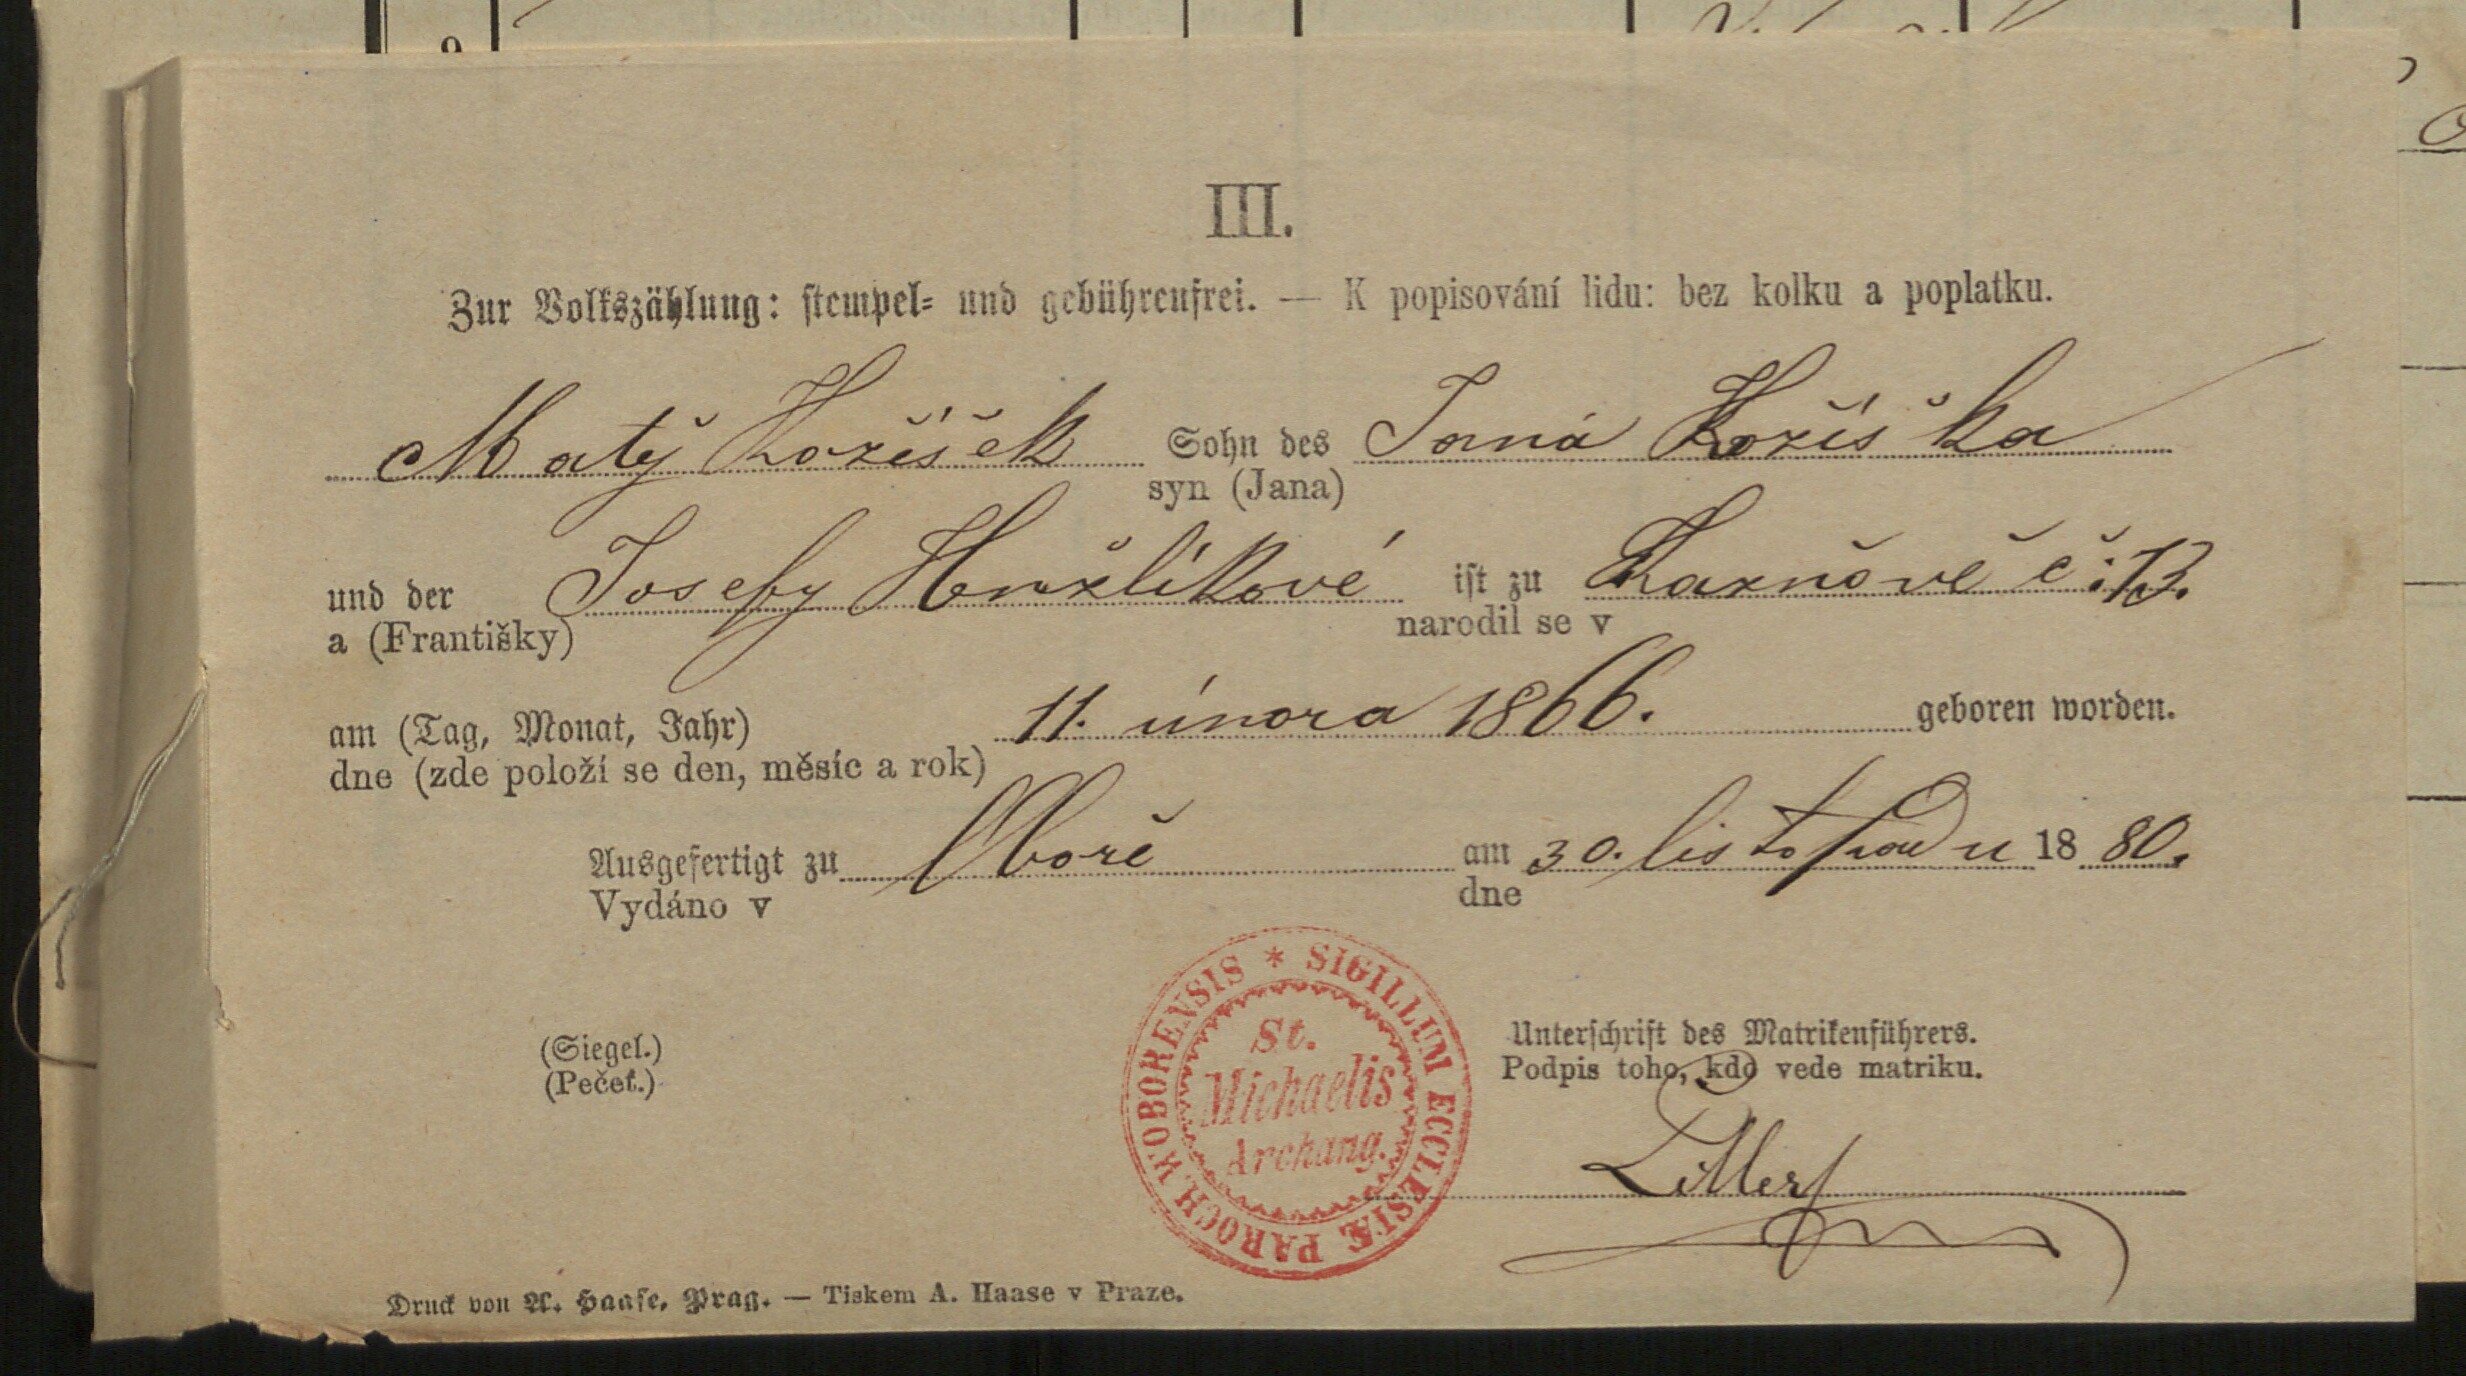 III.
Zur Volkszählung: stempel= und gebührenfrei. — K popisování lidu: bez kolku a poplatku.
Matěj Kožíšek Sohn des Jana Kožíška
syn (Jana)
und der Josefy Henžlíkové ist zu Kaznově č: 13.
a (Františky) narodil se v
am (Tag, Monat, Jahr) 11. února 1866. geboren worden.
dne (zde položí se den, měsíc a rok)
Ausgefertigt zu Oboře am 30. listopadu 18 80.
Vydáno v dne
SIGILLUM ECCLESIÆ PAROCH. WOBORENSIS *
St.
Michaelis
Archang.
(Siegel.) Unterschrift des Matrikenführers.
(Pečeť.) Podpis toho, kdo vede matriku.
Druck von A. Haase, Prag. — Tiskem A. Haase v Praze.